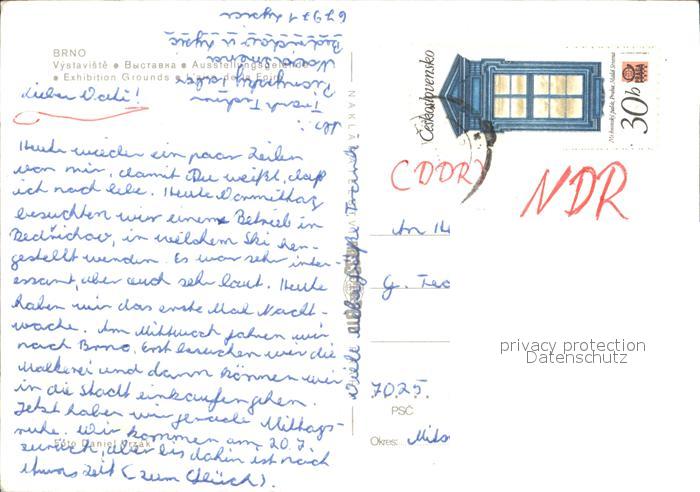 BRNO
Výstaviště ● Выставка ● Ausstellungsgelände
● Exhibition Grounds ●
Lieber Vati!
Heute wieder ein paar Zeilen
von mir, damit Du weißt, daß
ich noch lebe. Heute Vormittag
besuchten wir einen Betrieb in
Bedřichov, in welchem Ski her-
gestellt werden. Es war sehr inter-
essant, aber auch sehr laut. Heute
haben wir das erste Mal Nacht-
wache. Am Mittwoch fahren wir
nach Brno. Erst besuchen wir die
Molkerei und dann können wir
in die Stadt einkaufen gehen.
Jetzt haben wir gerade Mittags-
ruhe. Wir kommen am 20.7.
zurück, aber bis dahin ist noch
etwas Zeit (zum Glück).
Foto Daniel
Viele
NAKLA
Československo
30h
(DDR)
NDR
An
G.
7025
PSČ
Okres:
privacy protection
Datenschutz